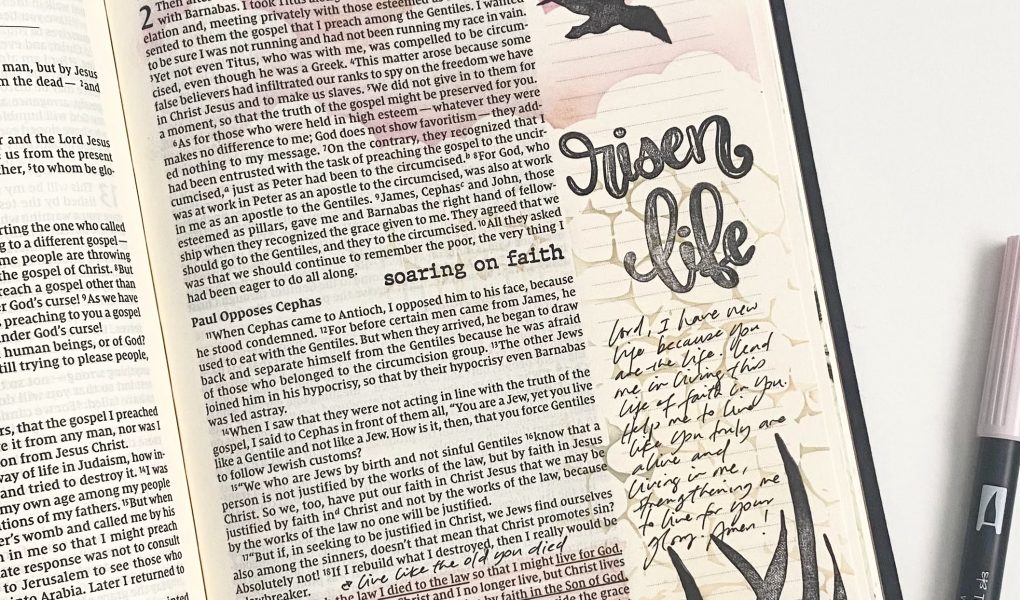 man, but by Jesus
m the dead— ²and
r and the Lord Jesus
us from the present
ther, ⁵to whom be glo-
rting the one who called
g to a different gospel—
me people are throwing
the gospel of Christ. ⁸But
reach a gospel other than
r God's curse! ⁹As we have
preaching to you a gospel
nder God's curse!
human beings, or of God?
till trying to please people,
rs, that the gospel I preached
e it from any man, nor was I
on from Jesus Christ.
way of life in Judaism, how in-
and tried to destroy it. ¹⁴I was
my own age among my people
itions of my fathers. ¹⁵But when
er's womb and called me by his
n in me so that I might preach
ate response was not to consult
to Jerusalem to see those who
nto Arabia. Later I returned to
2 Then after
with Barnabas. I took Titus
elation and, meeting privately with those esteemed
sented to them the gospel that I preach among the Gentiles. I wanted
to be sure I was not running and had not been running my race in vain.
³Yet not even Titus, who was with me, was compelled to be circum-
cised, even though he was a Greek. ⁴This matter arose because some
false believers had infiltrated our ranks to spy on the freedom we have
in Christ Jesus and to make us slaves. ⁵We did not give in to them for
a moment, so that the truth of the gospel might be preserved for you.
⁶As for those who were held in high esteem—whatever they were
makes no difference to me; God does not show favoritism—they add-
ed nothing to my message. ⁷On the contrary, they recognized that I
had been entrusted with the task of preaching the gospel to the uncir-
cumcised,ᵃ just as Peter had been to the circumcised.ᵇ ⁸For God, who
was at work in Peter as an apostle to the circumcised, was also at work
in me as an apostle to the Gentiles. ⁹James, Cephasᶜ and John, those
esteemed as pillars, gave me and Barnabas the right hand of fellow-
ship when they recognized the grace given to me. They agreed that we
should go to the Gentiles, and they to the circumcised. ¹⁰All they asked
was that we should continue to remember the poor, the very thing I
had been eager to do all along.
soaring on faith
Paul Opposes Cephas
¹¹When Cephas came to Antioch, I opposed him to his face, because
he stood condemned. ¹²For before certain men came from James, he
used to eat with the Gentiles. But when they arrived, he began to draw
back and separate himself from the Gentiles because he was afraid
of those who belonged to the circumcision group. ¹³The other Jews
joined him in his hypocrisy, so that by their hypocrisy even Barnabas
was led astray.
¹⁴When I saw that they were not acting in line with the truth of the
gospel, I said to Cephas in front of them all, “You are a Jew, yet you live
like a Gentile and not like a Jew. How is it, then, that you force Gentiles
to follow Jewish customs?
¹⁵“We who are Jews by birth and not sinful Gentiles ¹⁶know that a
person is not justified by the works of the law, but by faith in Jesus
Christ. So we, too, have put our faith in Christ Jesus that we may be
justified by faith inᵈ Christ and not by the works of the law, because
by the works of the law no one will be justified.
¹⁷“But if, in seeking to be justified in Christ, we Jews find ourselves
also among the sinners, doesn't that mean that Christ promotes sin?
Absolutely not! ¹⁸If I rebuild what I destroyed, then I really would be
lawbreaker.
live like the old you died
the law I died to the law so that I might live for God.
Christ and I no longer live, but Christ lives
by faith in the Son of God,
risen
life
Lord, I have new
life because you
are the life. Lead
me in living this
life of faith in you.
Help me to live
like you truly are
alive and
living in me,
strengthening me
to live for your
glory. Amen!
A